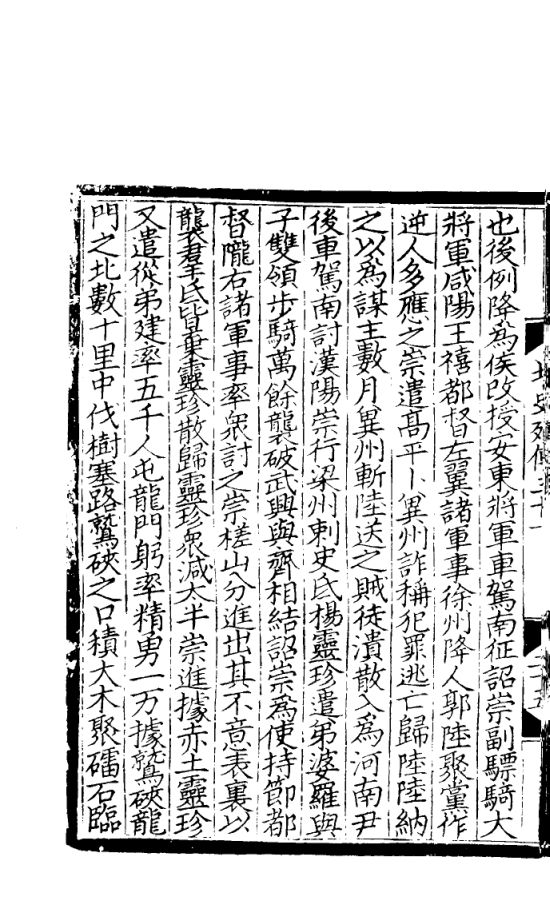 也後例降爲侯改授安東將軍車駕南征詔崇副驃騎大
將軍咸陽王禧都督左翼諸軍事徐州降人郭陸聚黨作
逆人多應之崇遣高平卜異州詐稱犯罪逃亡歸陸陸納
之以爲謀主數月異州斬陸送之賊徒潰散入爲河南尹
後車駕南討漢陽崇行梁州刺史氐楊靈珍遣弟婆羅與
子雙領步騎萬餘襲破武興與齊相結詔崇爲使持節都
督隴右諸軍事率衆討之崇槎山分進出其不意表裏以
襲羣氐皆棄靈珍散歸靈珍衆減太半崇進據赤土靈珍
又遣從弟建率五千人屯龍門躬率精勇一万據鷲硤龍
門之北數十里中伐樹塞路鷲硤之口積大木聚礌石臨
北史列傳三十一
二十五